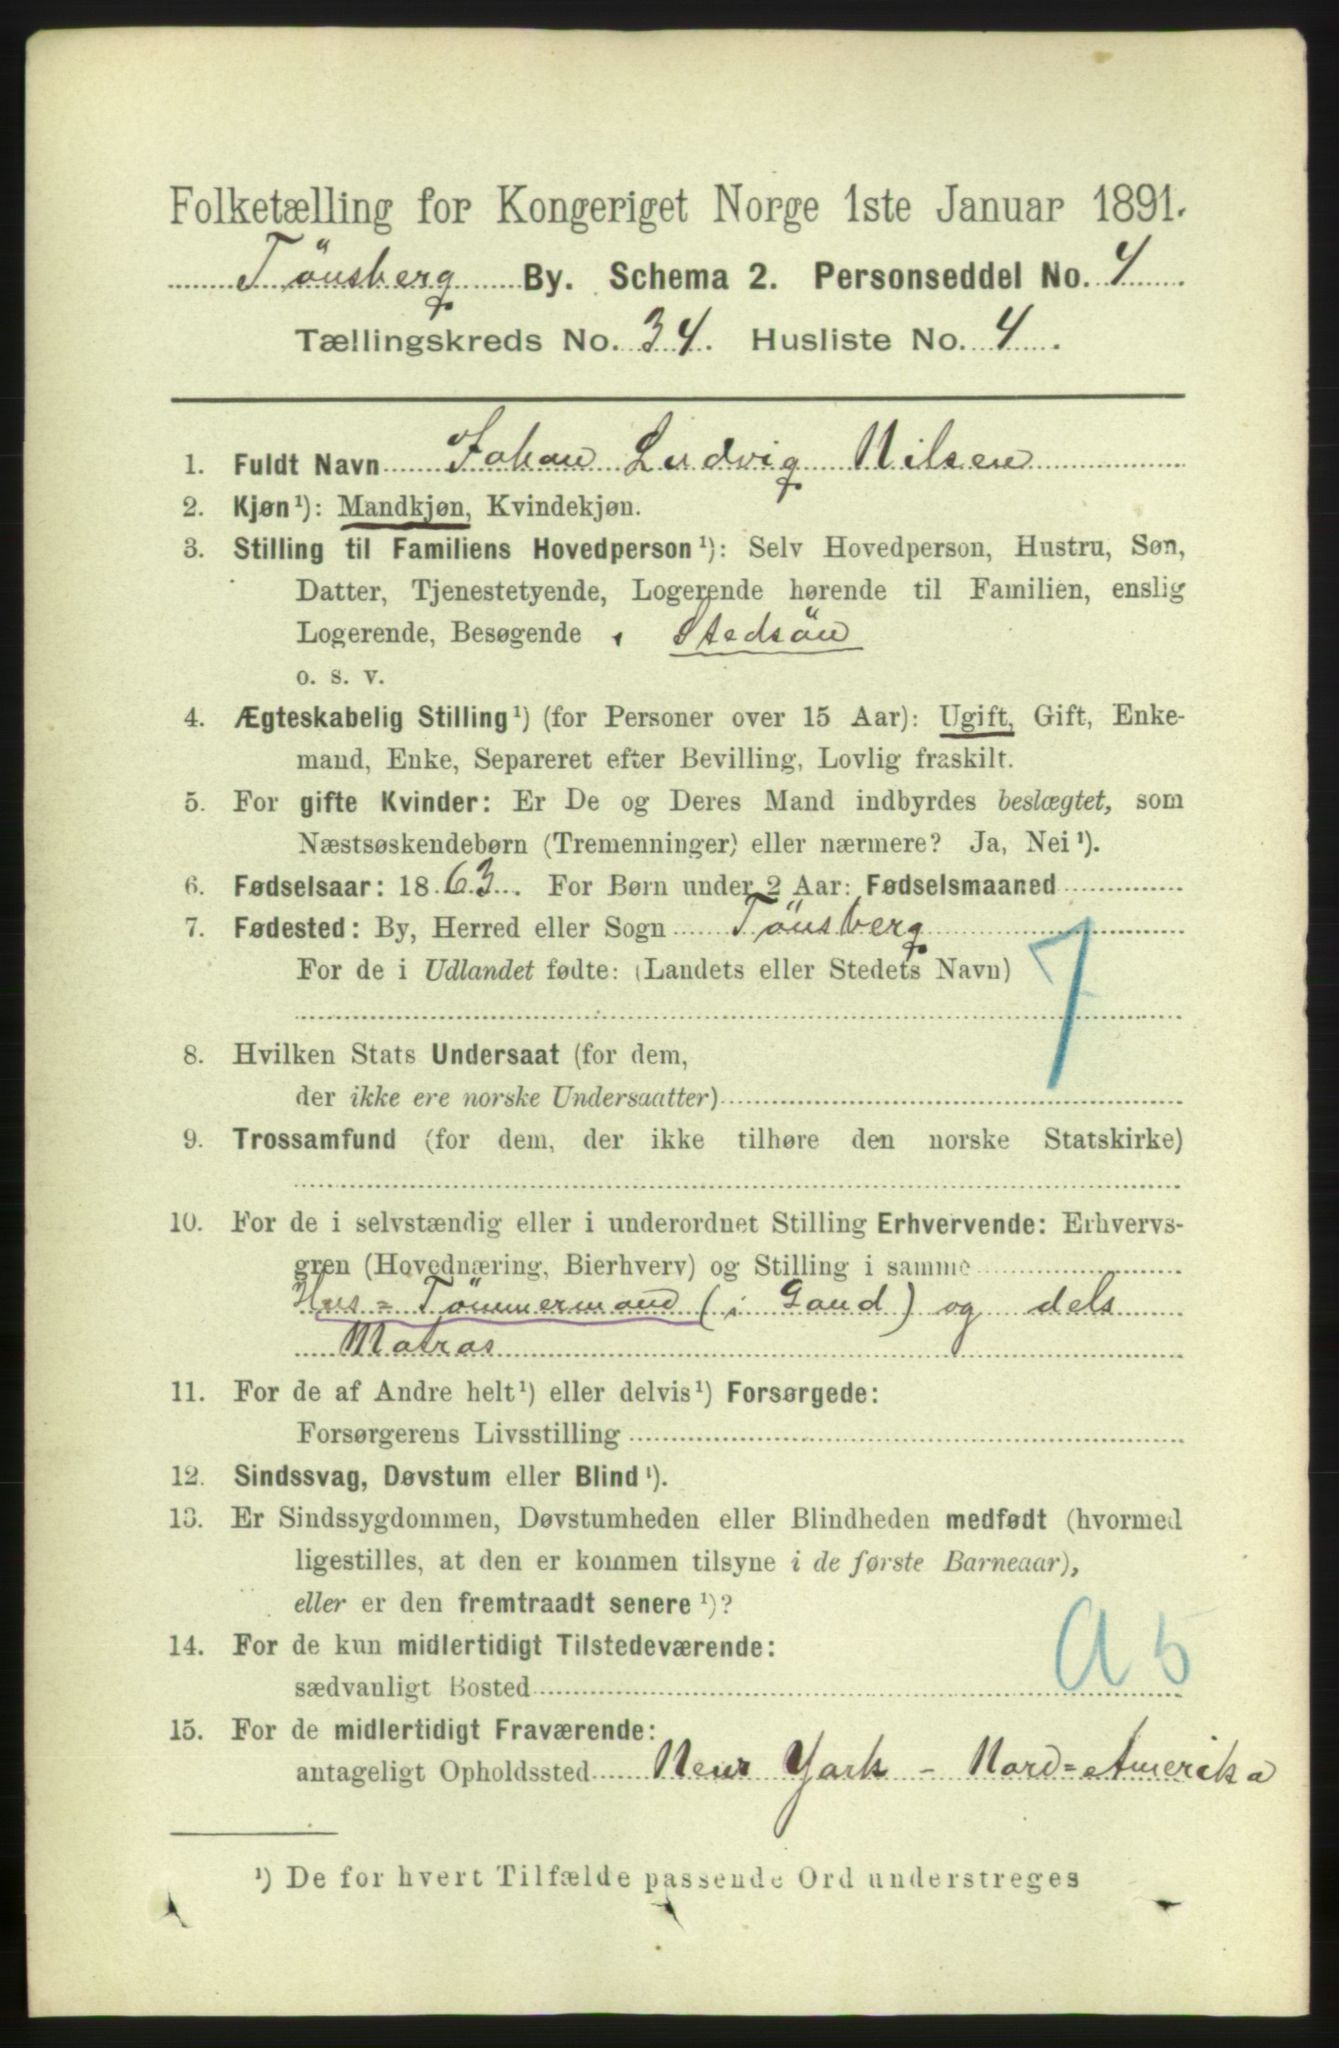 Folketælling for Kongeriget Norge 1ste Januar 1891.
Tönsberg By. Schema 2. Personseddel No. 4
Tællingskreds No. 34. Husliste No. 4.
1. Fuldt Navn Johan Ludvig Nilsen
2. Kjøn¹): Mandkjøn, Kvindekjøn.
3. Stilling til Familiens Hovedperson¹): Selv Hovedperson, Hustru, Søn,
Datter, Tjenestetyende, Logerende hørende til Familien, enslig
Logerende, Besøgende, Stedsön
o. s. v.
4. Ægteskabelig Stilling¹) (for Personer over 15 Aar): Ugift, Gift, Enke-
mand, Enke, Separeret efter Bevilling, Lovlig fraskilt.
5. For gifte Kvinder: Er De og Deres Mand indbyrdes beslægtet, som
Næstsøskendebørn (Tremenninger) eller nærmere? Ja, Nei¹).
6. Fødselsaar: 1863. For Børn under 2 Aar: Fødselsmaaned
7. Fødested: By, Herred eller Sogn Tönsberg
For de i Udlandet fødte: (Landets eller Stedets Navn)
7
8. Hvilken Stats Undersaat (for dem,
der ikke ere norske Undersaatter)
9. Trossamfund (for dem, der ikke tilhøre den norske Statskirke)
10. For de i selvstændig eller i underordnet Stilling Erhvervende: Erhvervs-
gren (Hovednæring, Bierhverv) og Stilling i samme
Hus=Tömmermand (i Land) og dels
Matros
11. For de af Andre helt¹) eller delvis¹) Forsørgede:
Forsørgerens Livsstilling
12. Sindssvag, Døvstum eller Blind¹).
13. Er Sindssygdommen, Døvstumheden eller Blindheden medfødt (hvormed
ligestilles, at den er kommen tilsyne i de første Barneaar),
eller er den fremtraadt senere¹)?
14. For de kun midlertidigt Tilstedeværende:
sædvanligt Bosted
a 5
15. For de midlertidigt Fraværende:
antageligt Opholdssted New York - Nord=Amerika
¹) De for hvert Tilfælde passende Ord understreges